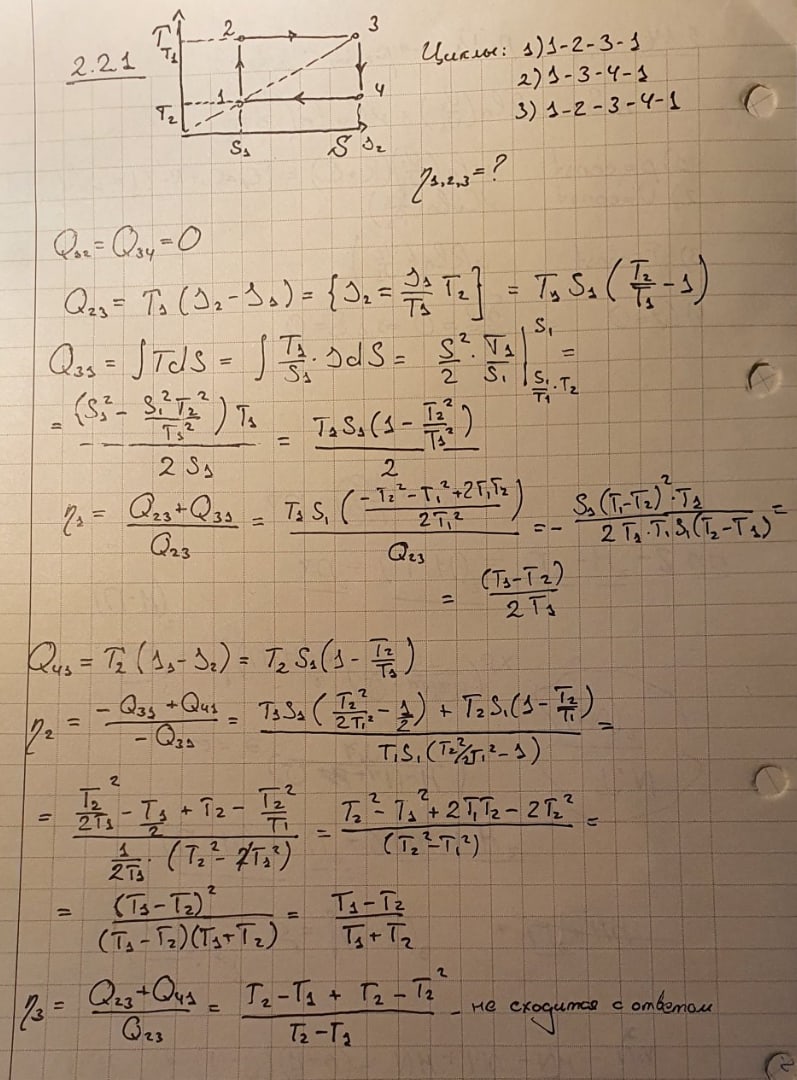 2.21
T
T₁
T₂
1
2
3
4
S₁
S
S₂
Циклы: 1) 1-2-3-1
2) 1-3-4-1
3) 1-2-3-4-1
η₁,₂,₃ = ?
Q₁₂ = Q₃₄ = 0
Q₂₃ = T₁ (S₂ - S₁) = {S₂ = S₁/T₁ T₂} = T₁ S₁ (T₂/T₁ - 1)
Q₃₁ = ∫TdS = ∫ T₁/S₁ · SdS = S²/2 · T₁/S₁ | S₁ S₁/T₁ · T₂ =
= (S₁² - S₁²T₂²/T₁²) T₁ / 2 S₁ = T₁ S₁ (1 - T₂²/T₁²) / 2
η₁ = Q₂₃ + Q₃₁ / Q₂₃ = T₁ S₁ (-T₂² - T₁² + 2T₁T₂ / 2T₁²) / Q₂₃ = - S₁ (T₁-T₂)² · T₁ / 2 T₁ · T₁ S₁ (T₂ - T₁) =
= (T₁ - T₂) / 2 T₁
Q₄₁ = T₂ (S₁ - S₂) = T₂ S₁ (1 - T₂/T₁)
η₂ = - Q₃₁ + Q₄₁ / - Q₃₁ = T₁S₁ (T₂²/2T₁² - 1/2) + T₂ S₁ (1 - T₂/T₁) / T₁S₁ (T₂²/2T₁² - 1) =
= T₂²/2T₁ - T₁/2 + T₂ - T₂²/T₁ / 1/2T₁ · (T₂² - T₁²) = T₂² - T₁² + 2T₁T₂ - 2T₂² / (T₂² - T₁²) =
= (T₁ - T₂)² / (T₁ - T₂)(T₁ + T₂) = T₁ - T₂ / T₁ + T₂
η₃ = Q₂₃ + Q₄₁ / Q₂₃ = T₂ - T₁ + T₂ - T₂² / T₂ - T₁ - не сходится с ответом